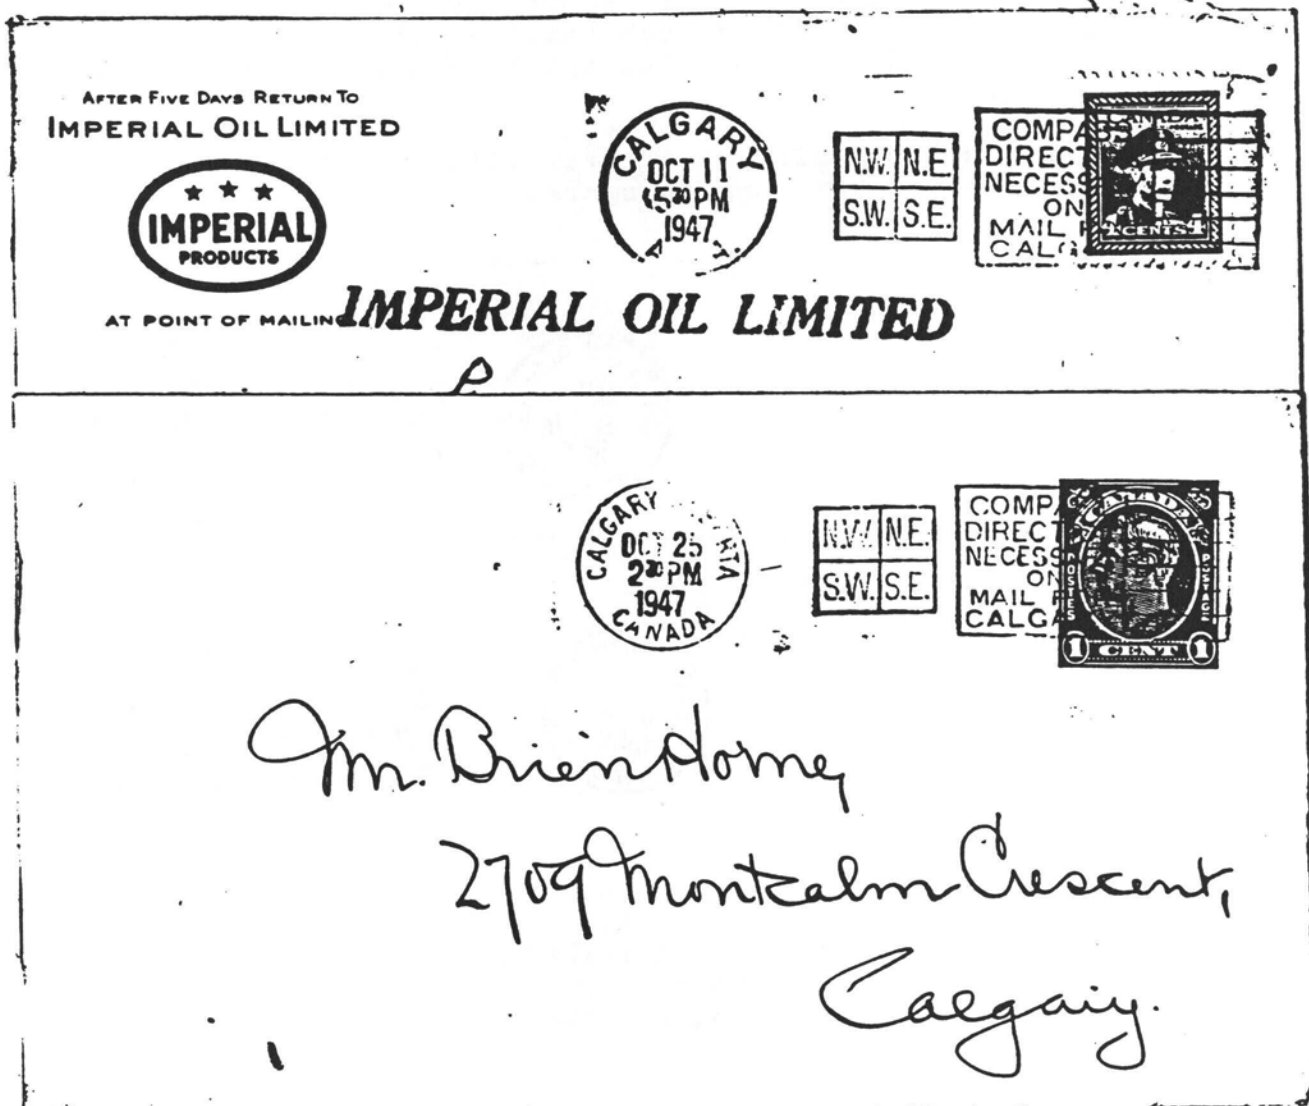 AFTER FIVE DAYS RETURN TO
IMPERIAL OIL LIMITED
IMPERIAL
PRODUCTS
AT POINT OF MAILING
IMPERIAL OIL LIMITED
CALGARY
OCT 11
5 30 PM
1947
N.W. N.E.
S.W. S.E.
COMPASS
DIRECT
NECESS
ON
MAIL
CALG
4 CENTS 4
CALGARY
OCT 25
2 30 PM
1947
CANADA
N.W. N.E.
S.W. S.E.
COMPA
DIRECT
NECESS
ON
MAIL
CALGA
CANADA
POSTES POSTAGE
1 CENT 1
Mr. Brien Horne,
2709 Montcalm Crescent,
Calgary.